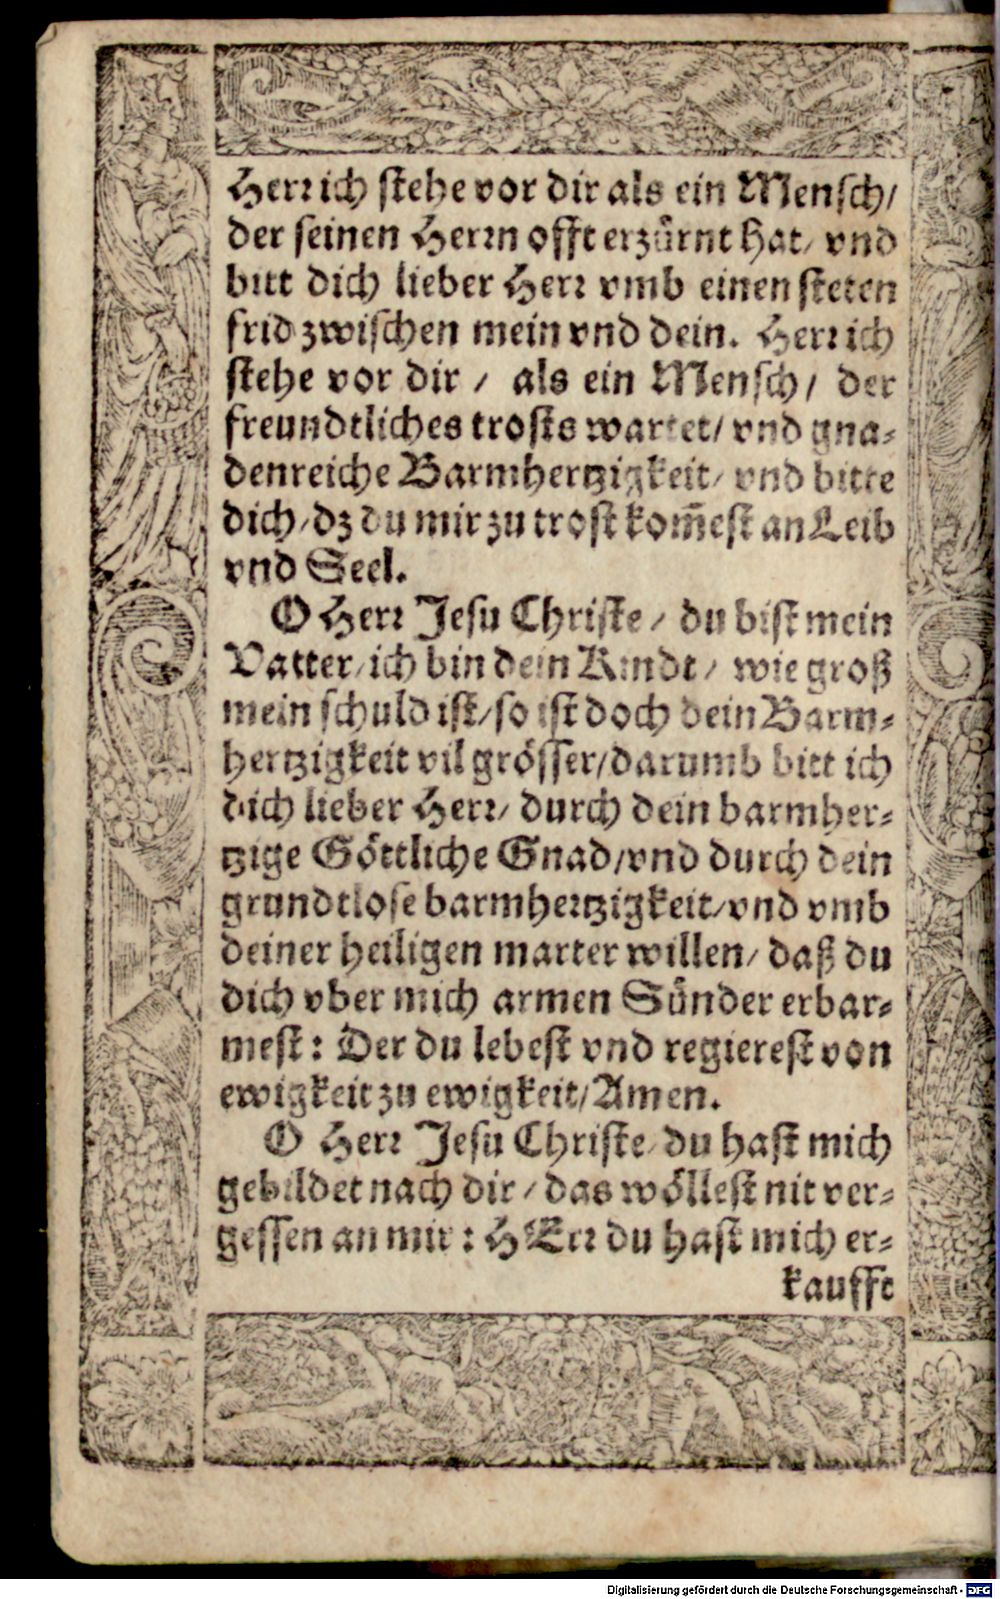 Herr ich stehe vor dir als ein Mensch/
der seinen Herrn offt erzürnt hat/ vnd
bitt dich lieber Herr vmb einen steten
frid zwischen mein vnd dein. Herr ich
stehe vor dir / als ein Mensch/ der
freundtliches trosts wartet/ vnd gna-
denreiche Barmhertzigkeit/ vnd bitte
dich/ dz du mir zu trost kom̃est an Leib
vnd Seel.
O Herr Jesu Christe / du bist mein
Vatter/ ich bin dein Kindt / wie groß
mein schuld ist/ so ist doch dein Barm-
hertzigkeit vil grösser/ darumb bitt ich
dich lieber Herr/ durch dein barmher-
tzige Göttliche Gnad/ vnd durch dein
grundtlose barmhertzigkeit/ vnd vmb
deiner heiligen marter willen/ daß du
dich vber mich armen Sünder erbar-
mest: Der du lebest vnd regierest von
ewigkeit zu ewigkeit/ Amen.
O Herr Jesu Christe/ du hast mich
gebildet nach dir / das wöllest nit ver-
gessen an mir: HErr du hast mich er-
kaufft
Digitalisierung gefördert durch die Deutsche Forschungsgemeinschaft - DFG